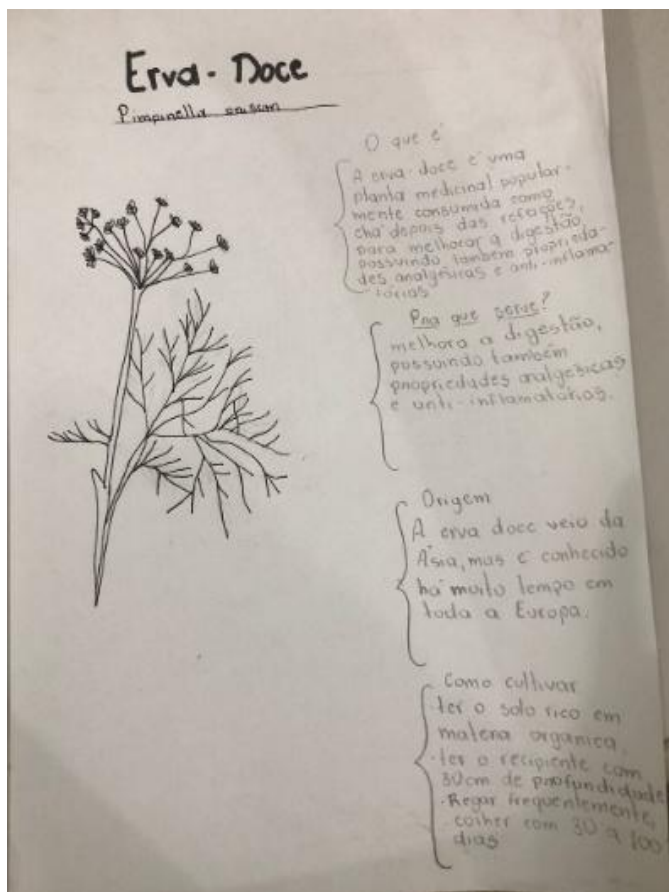 Erva-Doce
Pimpinella
O que é
A erva-doce é uma
planta medicinal popular-
mente consumida como
chá depois das refeições,
para melhorar a digestão,
possuindo também proprieda-
des analgésicas e anti-inflama-
tórias
Pra que serve?
melhora a digestão,
possuindo também
propriedades analgésicas
e anti-inflamatórias.
Origem
A erva doce veio da
Ásia, mas é conhecido
há muito tempo em
toda a Europa.
Como cultivar
ter o solo rico em
materia organica.
·ter o recipiente com
30cm de profundidade
·Regar frequentemente,
colher com 30 a 100
dias